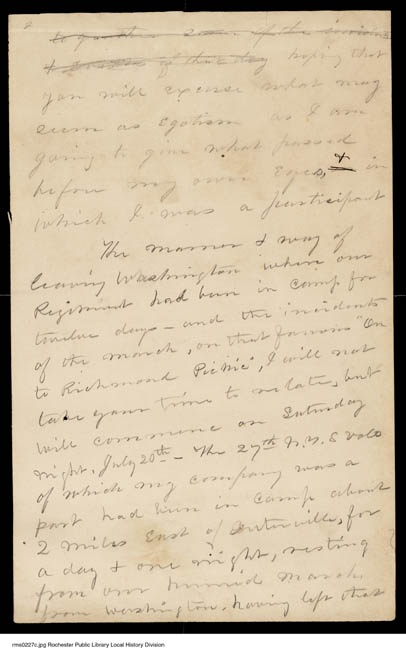 2
to gather some of the incidents
& scenes of that day hoping that
you will excuse what may
seem as egotism as I am
going to give what passed
before my own eyes, & in
which I was a participant
The manner & way of
leaving Washington where our
Regiment had been in camp for
twelve days - and the incidents
of the march, on that famous "On
to Richmond Picnic", I will not
take your time to relate, but
will commence on Saturday
night, July 20th - The 27th N.Y.S Vols
of which my company was a
part had been in camp about
2 miles East of Centerville, for
a day & one night, resting
from our hurried march,
from Washington, having left that
rms0227c.jpg Rochester Public Library Local History Division